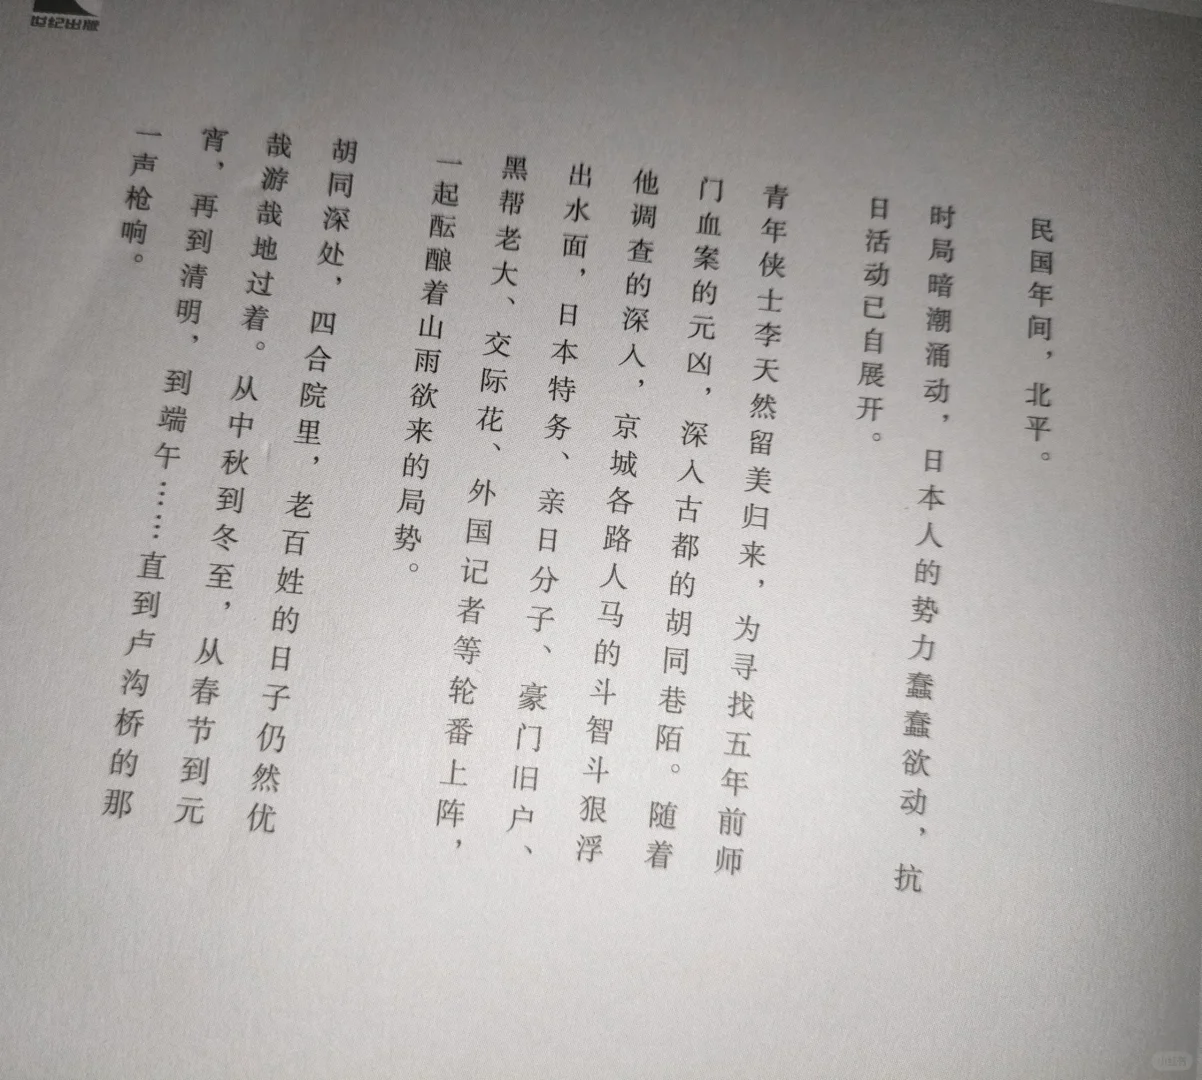 世纪出版
民国年间，北平。
时局暗潮涌动，日本人的势力蠢蠢欲动，抗
日活动已自展开。
青年侠士李天然留美归来，为寻找五年前师
门血案的元凶，深入古都的胡同巷陌。随着
他调查的深入，京城各路人马的斗智斗狠浮
出水面，日本特务、亲日分子、豪门旧户、
黑帮老大、交际花、外国记者等轮番上阵，
一起酝酿着山雨欲来的局势。
胡同深处，四合院里，老百姓的日子仍然优
哉游哉地过着。从中秋到冬至，从春节到元
宵，再到清明，到端午……直到卢沟桥的那
一声枪响。
小红书